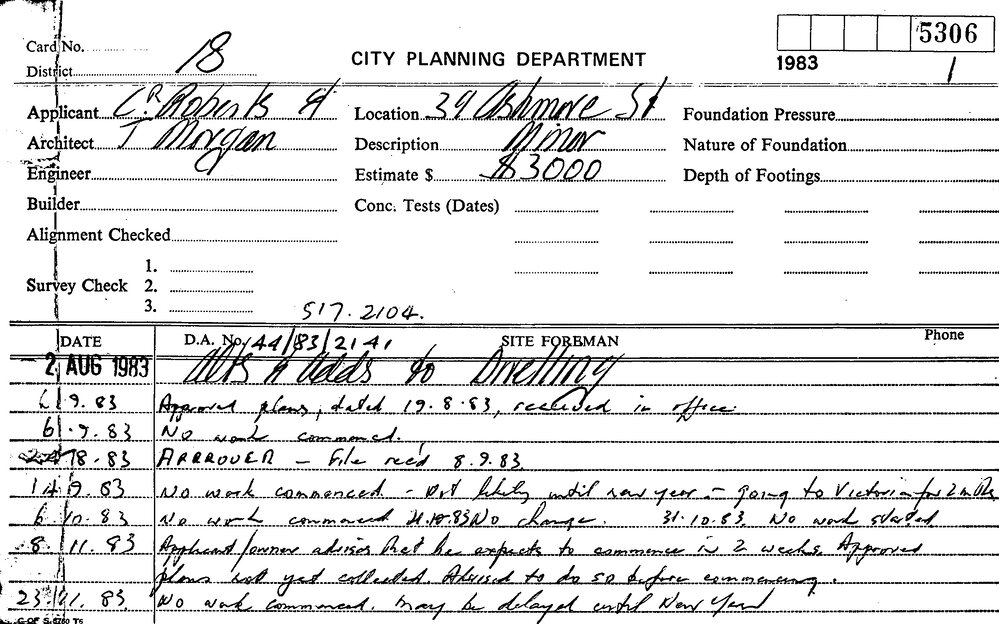 5306
Card No. 18
CITY PLANNING DEPARTMENT
1983 1
District
Applicant C.R Roberts & Location 39 Ashmore St Foundation Pressure
Architect T Morgan Description Minor Nature of Foundation
Engineer Estimate $ $3000 Depth of Footings
Builder Conc. Tests (Dates)
Alignment Checked
1.
Survey Check 2.
3.
517.2104.
DATE D.A. No. 44/83/2141 SITE FOREMAN Phone
- 2 AUG 1983 Alts & Adds to Dwelling
6 9.83 Approved plans, dated 19.8.83, received in office.
6.9.83 No work commenced.
8.83 APPROVED - File recd 8.9.83.
14 9.83 No work commenced - Not likely until new year - going to Victoria for 2 mths
6 10.83 No work commenced 21.10.83 No change. 31.10.83. No work started
8 11.83 Applicant/owner advises that he expects to commence in 2 weeks. Approved
plans not yet collected. Advised to do so before commencing.
23.11.83. No work commenced. May be delayed until New Year
C OF S 6760 T6